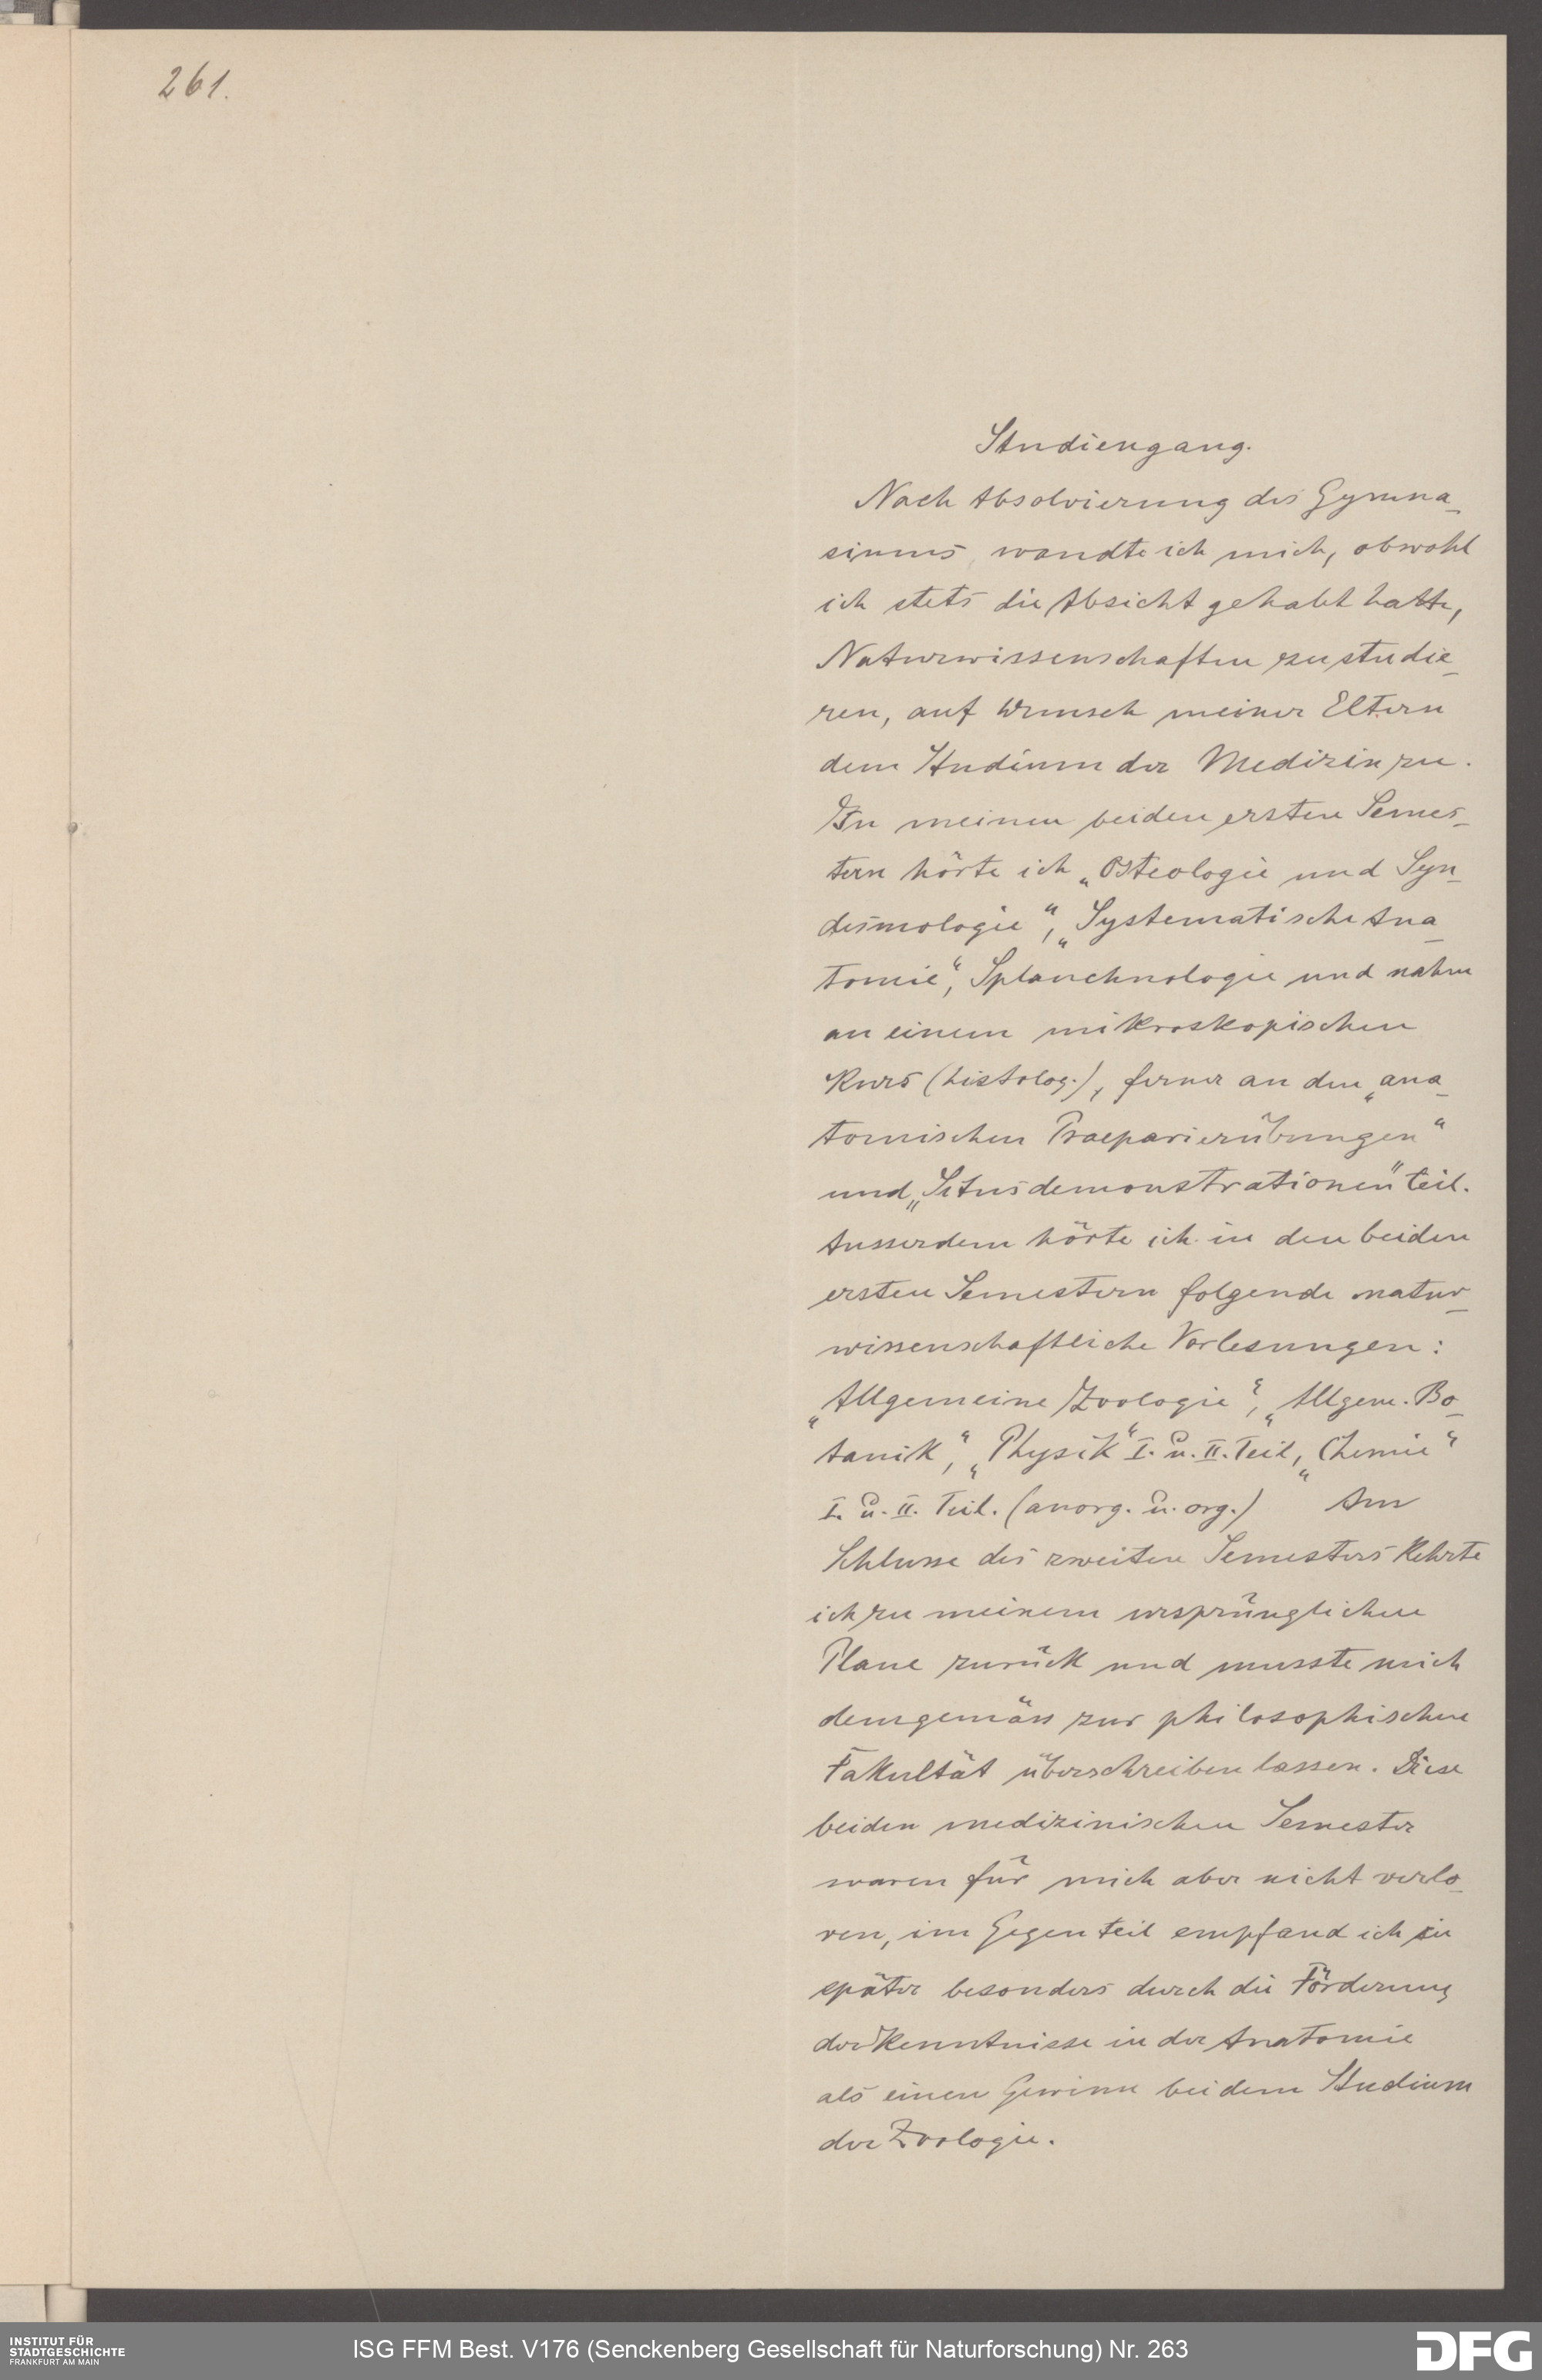 261.
Studiengang.
Nach Absolvierung des Gymna-
siums, wandte ich mich, obwohl
ich stets die Absicht gehabt hatte,
Naturwissenschaften zu studie-
ren, auf Wunsch meiner Eltern
dem Studium der Medizin zu.
In meinen beiden ersten Semes-
tern hörte ich „Osteologie und Syn-
desmologie“, „Systematische Ana-
tomie“, Splanchnologie und nahm
an einem mikroskopischen
Kurs (histolog.), ferner an den „ana-
tomischen Praeparierübungen“
und „Situsdemonstrationen“ teil.
Ausserdem hörte ich in den beiden
ersten Semestern folgende natur-
wissenschaftliche Vorlesungen:
„Allgemeine Zoologie“, „Allgem. Bo-
tanik“, „Physik“ I. u. II. Teil, „Chemie“
I. u. II. Teil. (anorg. u. org.) Am
Schlusse des zweiten Semesters kehrte
ich zu meinem ursprünglichen
Plane zurück und musste mich
demgemäss zur philosophischen
Fakultät überschreiben lassen. Diese
beiden medizinischen Semester
waren für mich aber nicht verlo-
ren, im Gegenteil empfand ich sie
später besonders durch die Förderung
der Kenntnisse in der Anatomie
als einen Gewinn bei dem Studium
der Zoologie.
INSTITUT FÜR
STADTGESCHICHTE
FRANKFURT AM MAIN
ISG FFM Best. V176 (Senckenberg Gesellschaft für Naturforschung) Nr. 263
DFG